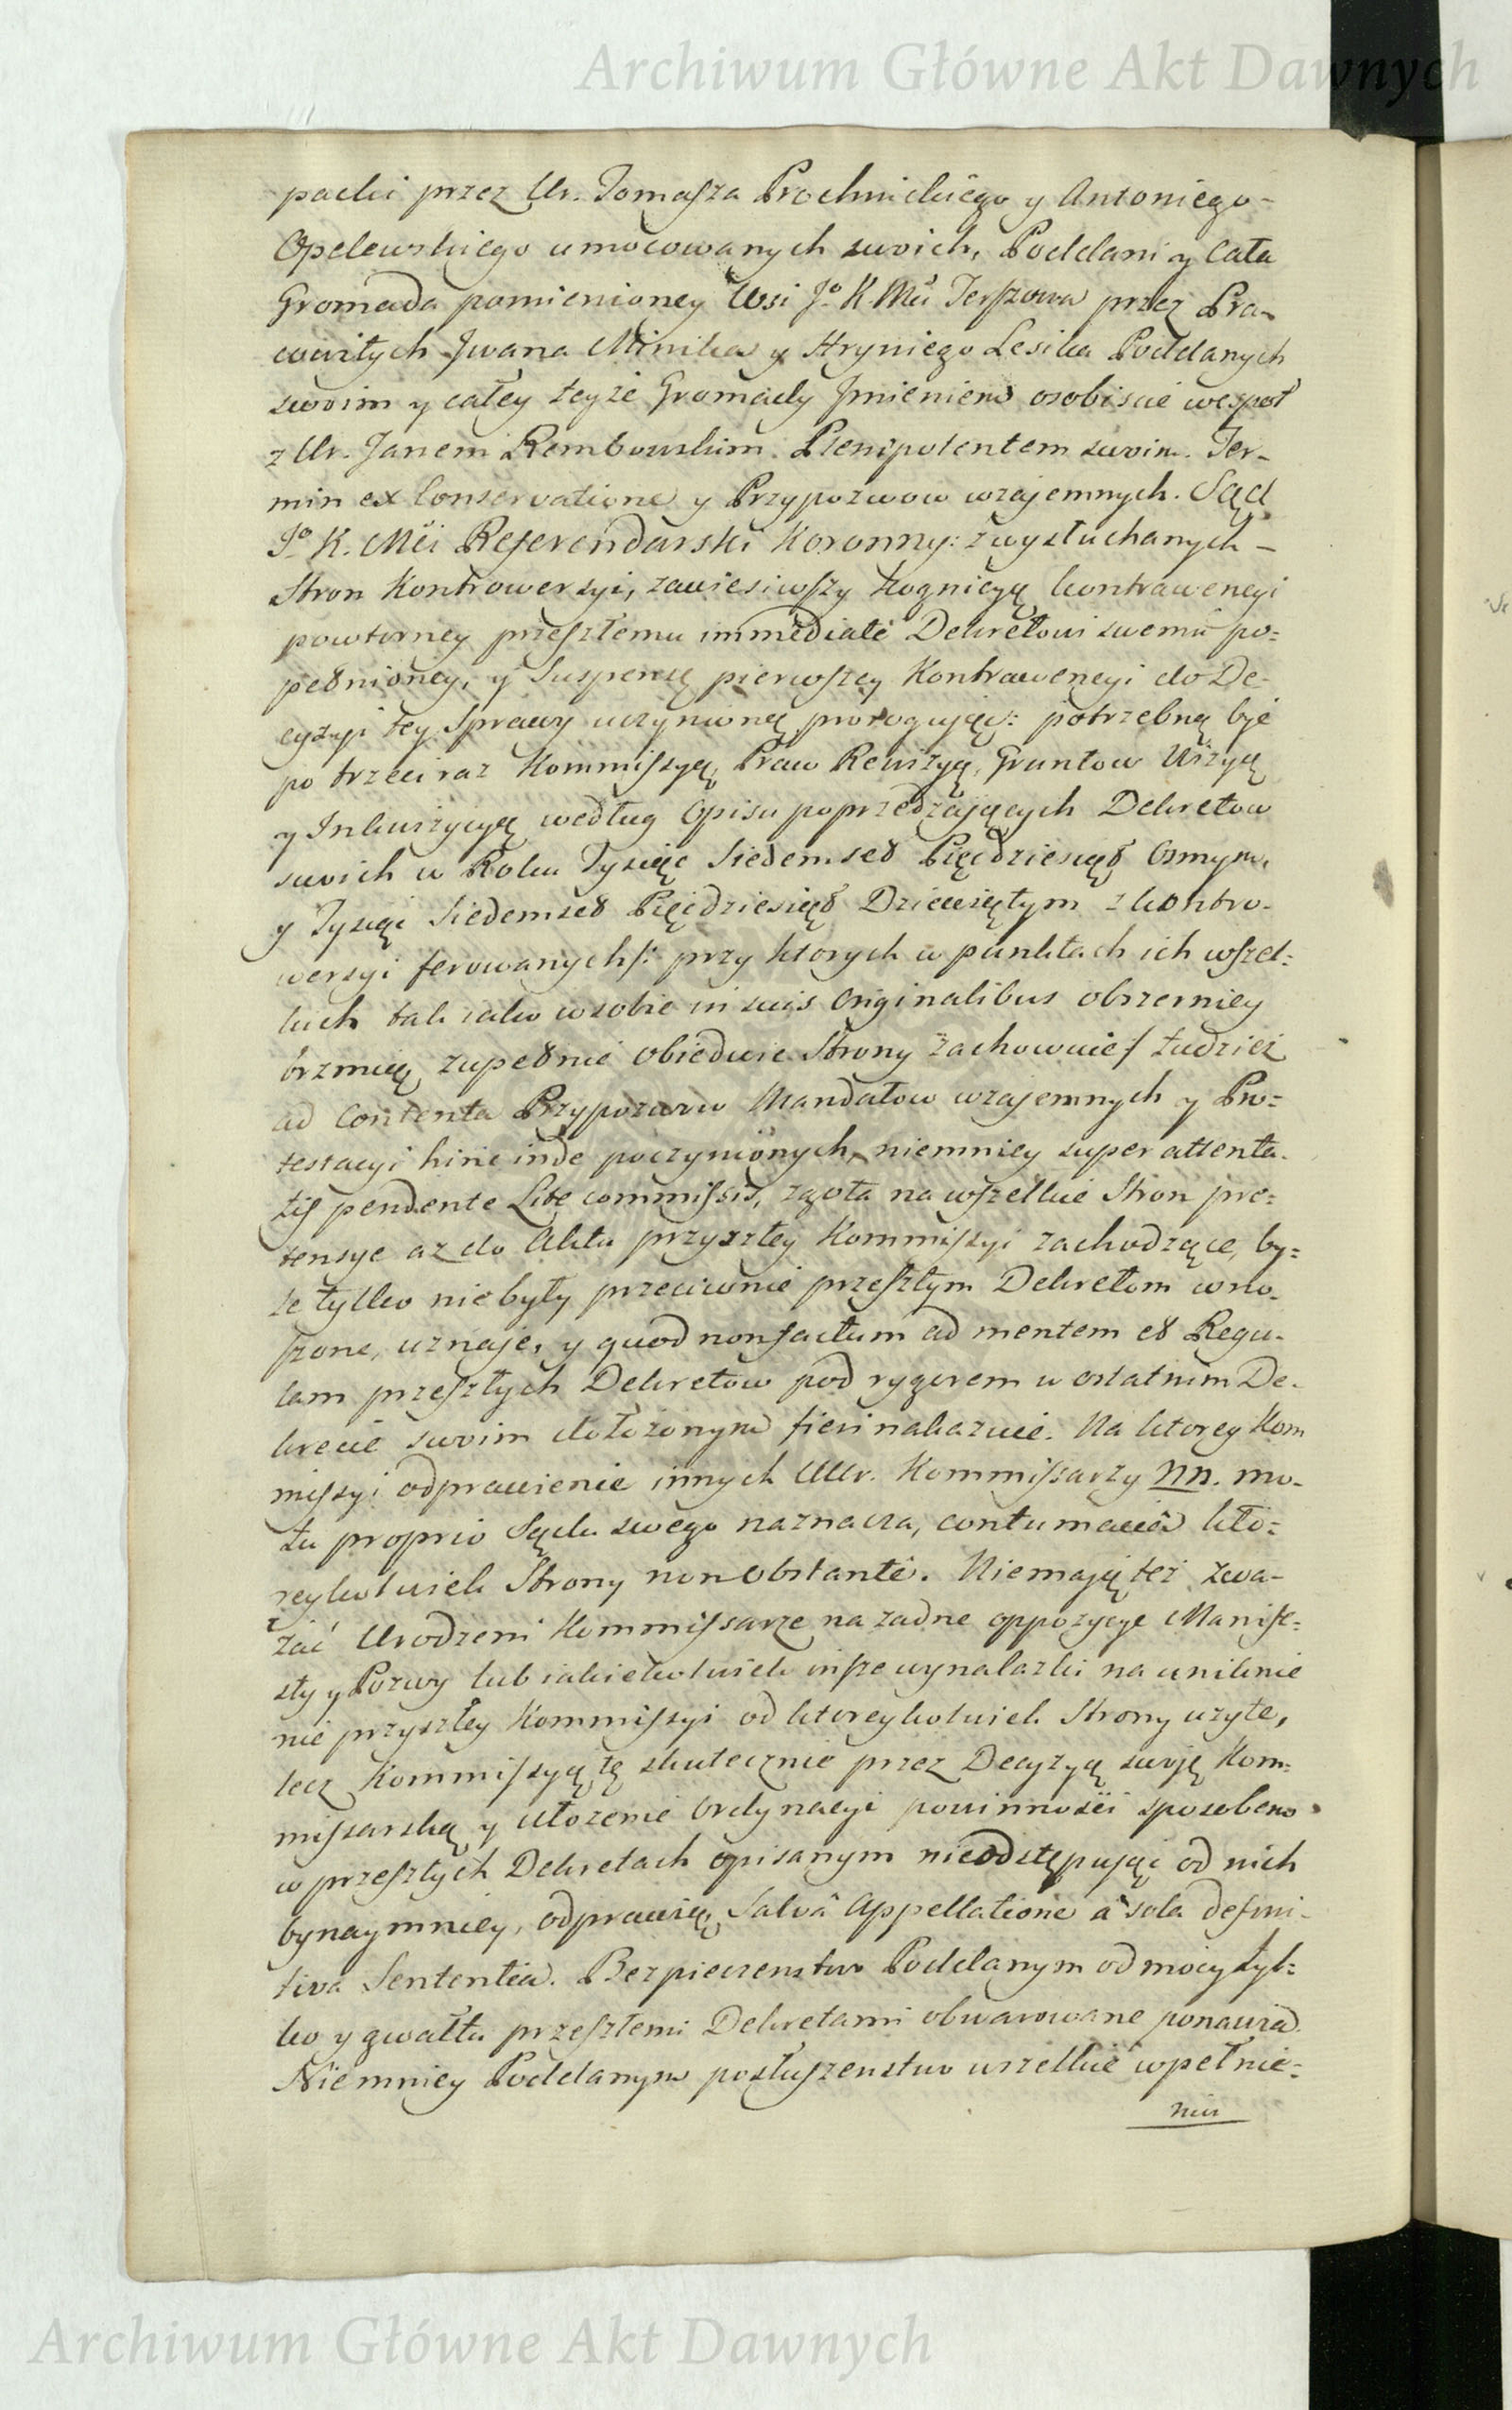 Archiwum Główne Akt Dawnych
packi przez Ur. Tomaſza Prochnickiego y Antoniego-
Opelewskiego umocowanych swoich, Poddani y Cała
Gromada pomienioney Wsi Jº K. Mci Terſzowa przez Pra-
cowitych Jwana Minika y Hryniego Lesika Poddanych
swoim y całey teyże Gromady Jmieniem osobiscie wespoł
z Ur. Janem Rembowskim Plenipotentem swoim. Ter-
min ex Conservatione y Przypozwow wzajemnych. Sąd
Jº K. Mci Referendarski Koronny: z wysłuchanych –
Stron Kontrowersyi, zawiesiwſzy Kognicyą kontrawencyi
powtorney przeſzłemu immediate Dekretowi swemu po=
pełnioney, y Suspensę pierwſzey Kontrawencyi do De-
cyzyi tey Sprawy uczynioną prorogując: potrzebną być
po trzeci raz Kommiſsyą, Praw Rewizyą, Gruntow Wizyą
y Inkwizycyą według Opisu poprzedzających Dekretow
swich w Roku Tysiąc Siedemset Pięcdziesiąt Osmym,
y Tysiąc Siedemset Pięcdziesiąt Dziewiątym z kontro-
wersyi ferowanych /: przy ktorych w punktach ich wſzel=
kich tak iako w sobie in suis Originalibus obszerniey
brzmią zupełnie obiedwie Strony zachowuie :/ tudziez
ad Contenta Przypozwow Mandatow wzajemnych y Pro=
testacyi hinc inde poczynionych, niemniey super attenta-
tis pendente Lite commiſsis, zgoła na wſzelkie Stron pre=
tensye az do Aktu przyszłey Kommiſsyi zachodzące, by=
le tylko nie były przeciwnie przeſzłym Dekretom wno-
ſzone, uznaje, y quod non factum ad mentem et Regu-
lam przeſzłych Dekretow pod rygorem w ostatnim De-
krecie swoim dołożonym fieri nakazuie. Na ktorey Kom
miſsyi odprawienie innych UUr. Kommiſsarzy NN. mo-
tu proprio Sądu swego naznacza, contumaciâ kto=
reykolwiek Strony non obstante. Niemają tez zwa-
żać Urodzeni Kommiſsarze na zadne oppozycye Manife=
sty y Pozwy lub iakiekolwiek inſze wynalazki na uniknie
nie przyszłey Kommiſsyi od ktoreykolwiek Strony uzyte,
lecz Kommiſsyą tę skutecznie przez Decyzyą swoję Kom=
miſsarską y ułozenie Ordynacyi powinnosci sposobem
w przeſzłych Dekretach opisanym nieodstępując od nich
bynaymniey, odprawią, Salvâ Appellatione â sola defini-
tiva Sententia. Bezpieczenstwo Poddanym od mocy tyl=
ko y gwałtu przeſzłemi Dekretami obwarowane ponawia.
Niemniey Poddanym posłuſzenstwo wszelkie w pełnie=
niu
Archiwum Główne Akt Dawnych